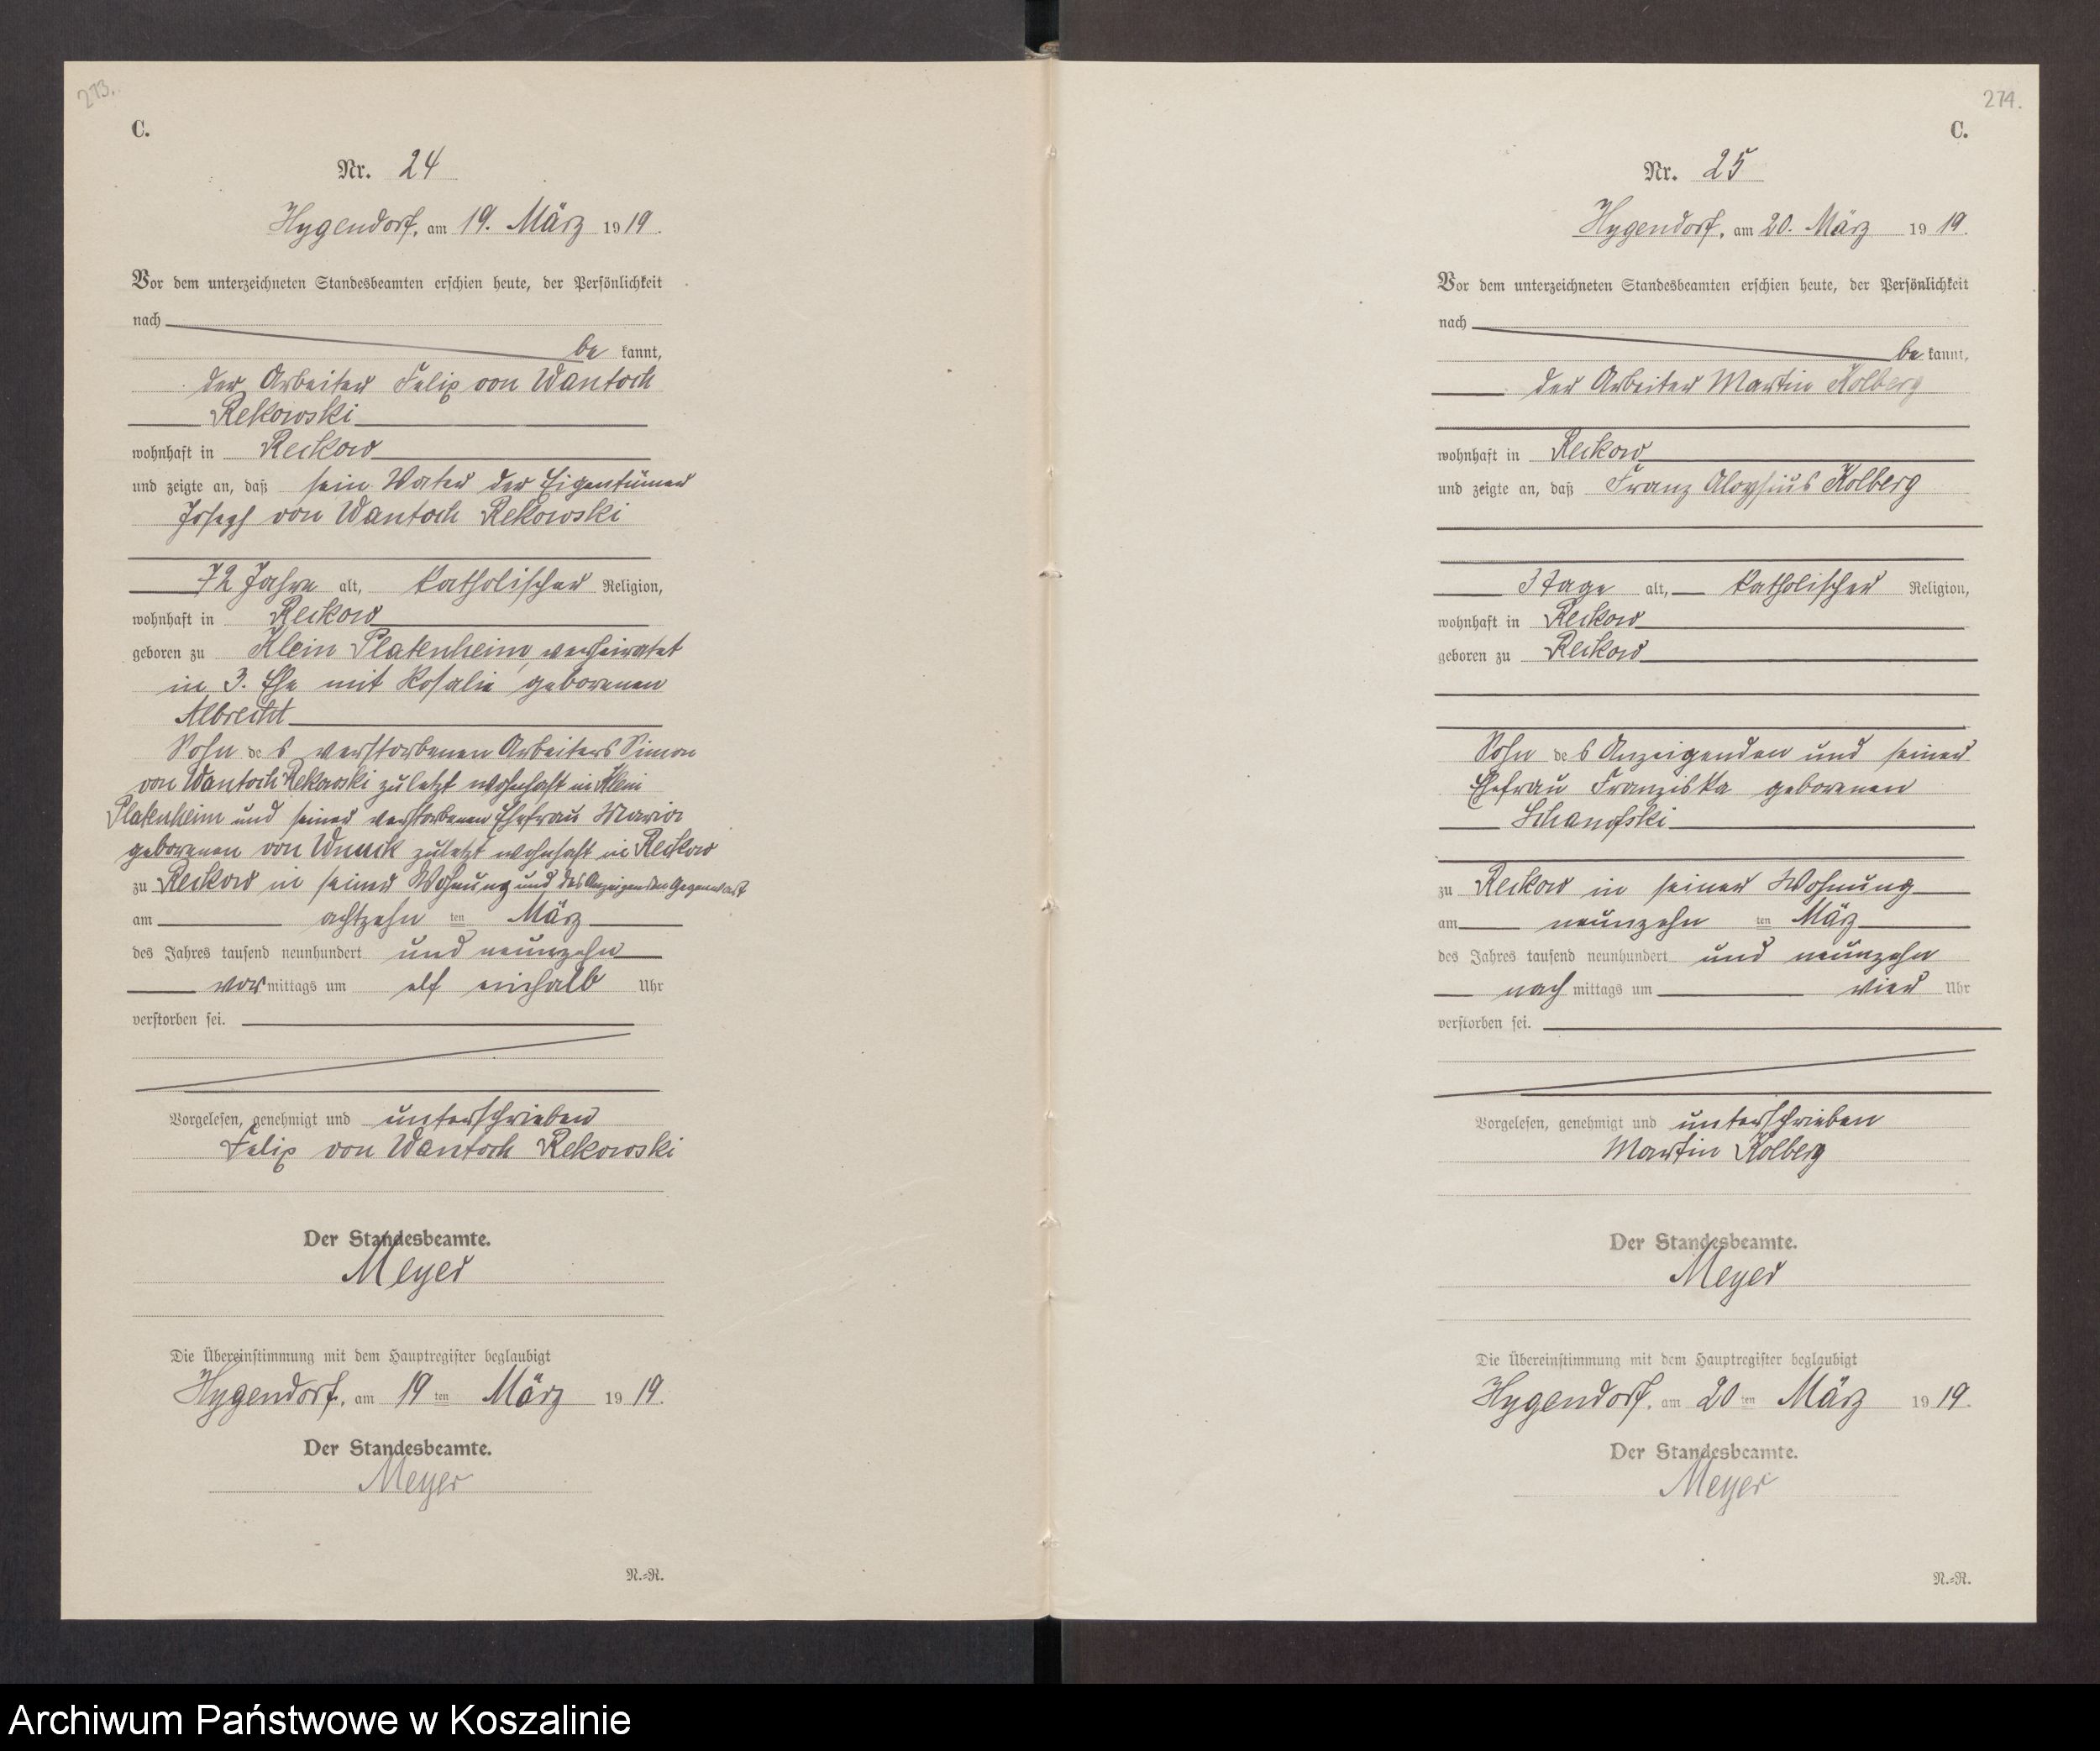 273.
C.
Nr. 24
Hygendorf, am 19. März 1919.
Vor dem unterzeichneten Standesbeamten erschien heute, der Persönlichkeit
nach
be kannt,
der Arbeiter Felix von Wantoch
Rekowski
wohnhaft in Reckow
und zeigte an, daß sein Vater der Eigentümer
Joseph von Wantoch Rekowski
72 Jahre alt, katholischer Religion,
wohnhaft in Reckow
geboren zu Klein Platenheim, verheiratet
in 3. Ehe mit Rosalie geborenen
Albrecht
Sohn des verstorbenen Arbeiters Simon
von Wantoch Rekowski zuletzt wohnhaft in Klein
Platenheim und seiner verstorbenen Ehefrau Maria
geborenen von zuletzt wohnhaft in Reckow
zu Reckow in seiner Wohnung und des Anzeigenden Gegenwart
am achtzehn ten März
des Jahres tausend neunhundert und neunzehn
vor mittags um elf einhalb Uhr
verstorben sei.
Vorgelesen, genehmigt und unterschrieben
Felix von Wantoch Rekowski
Der Standesbeamte.
Meyer
Die Übereinstimmung mit dem Hauptregister beglaubigt
Hygendorf, am 19 ten März 1919.
Der Standesbeamte.
Meyer
N.=R.
274.
C.
Nr. 25
Hygendorf, am 20. März 1919.
Vor dem unterzeichneten Standesbeamten erschien heute, der Persönlichkeit
nach
be kannt,
der Arbeiter Martin Kolberg
wohnhaft in Reckow
und zeigte an, daß Franz Aloysius Kolberg
3 Tage alt, katholischer Religion,
wohnhaft in Reckow
geboren zu Reckow
Sohn des Anzeigenden und seiner
Ehefrau Franziska geborenen
zu Reckow in seiner Wohnung
am neunzehn ten März
des Jahres tausend neunhundert und neunzehn
nach mittags um vier Uhr
verstorben sei.
Vorgelesen, genehmigt und unterschrieben
Martin Kolberg
Der Standesbeamte.
Meyer
Die Übereinstimmung mit dem Hauptregister beglaubigt
Hygendorf, am 20 ten März 1919.
Der Standesbeamte.
Meyer
N.=R.
Archiwum Państwowe w Koszalinie